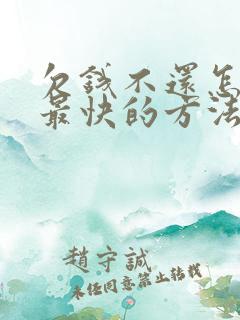 欠錢不還怎
最快的方法
趙守誠
未經同意禁止轉載